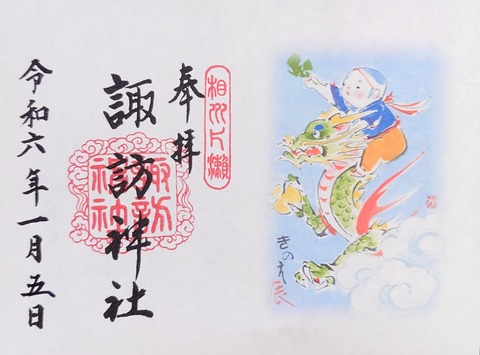 相州片瀬
奉拝
諏訪神社
諏訪神社
令和六年一月五日
きのえ辰